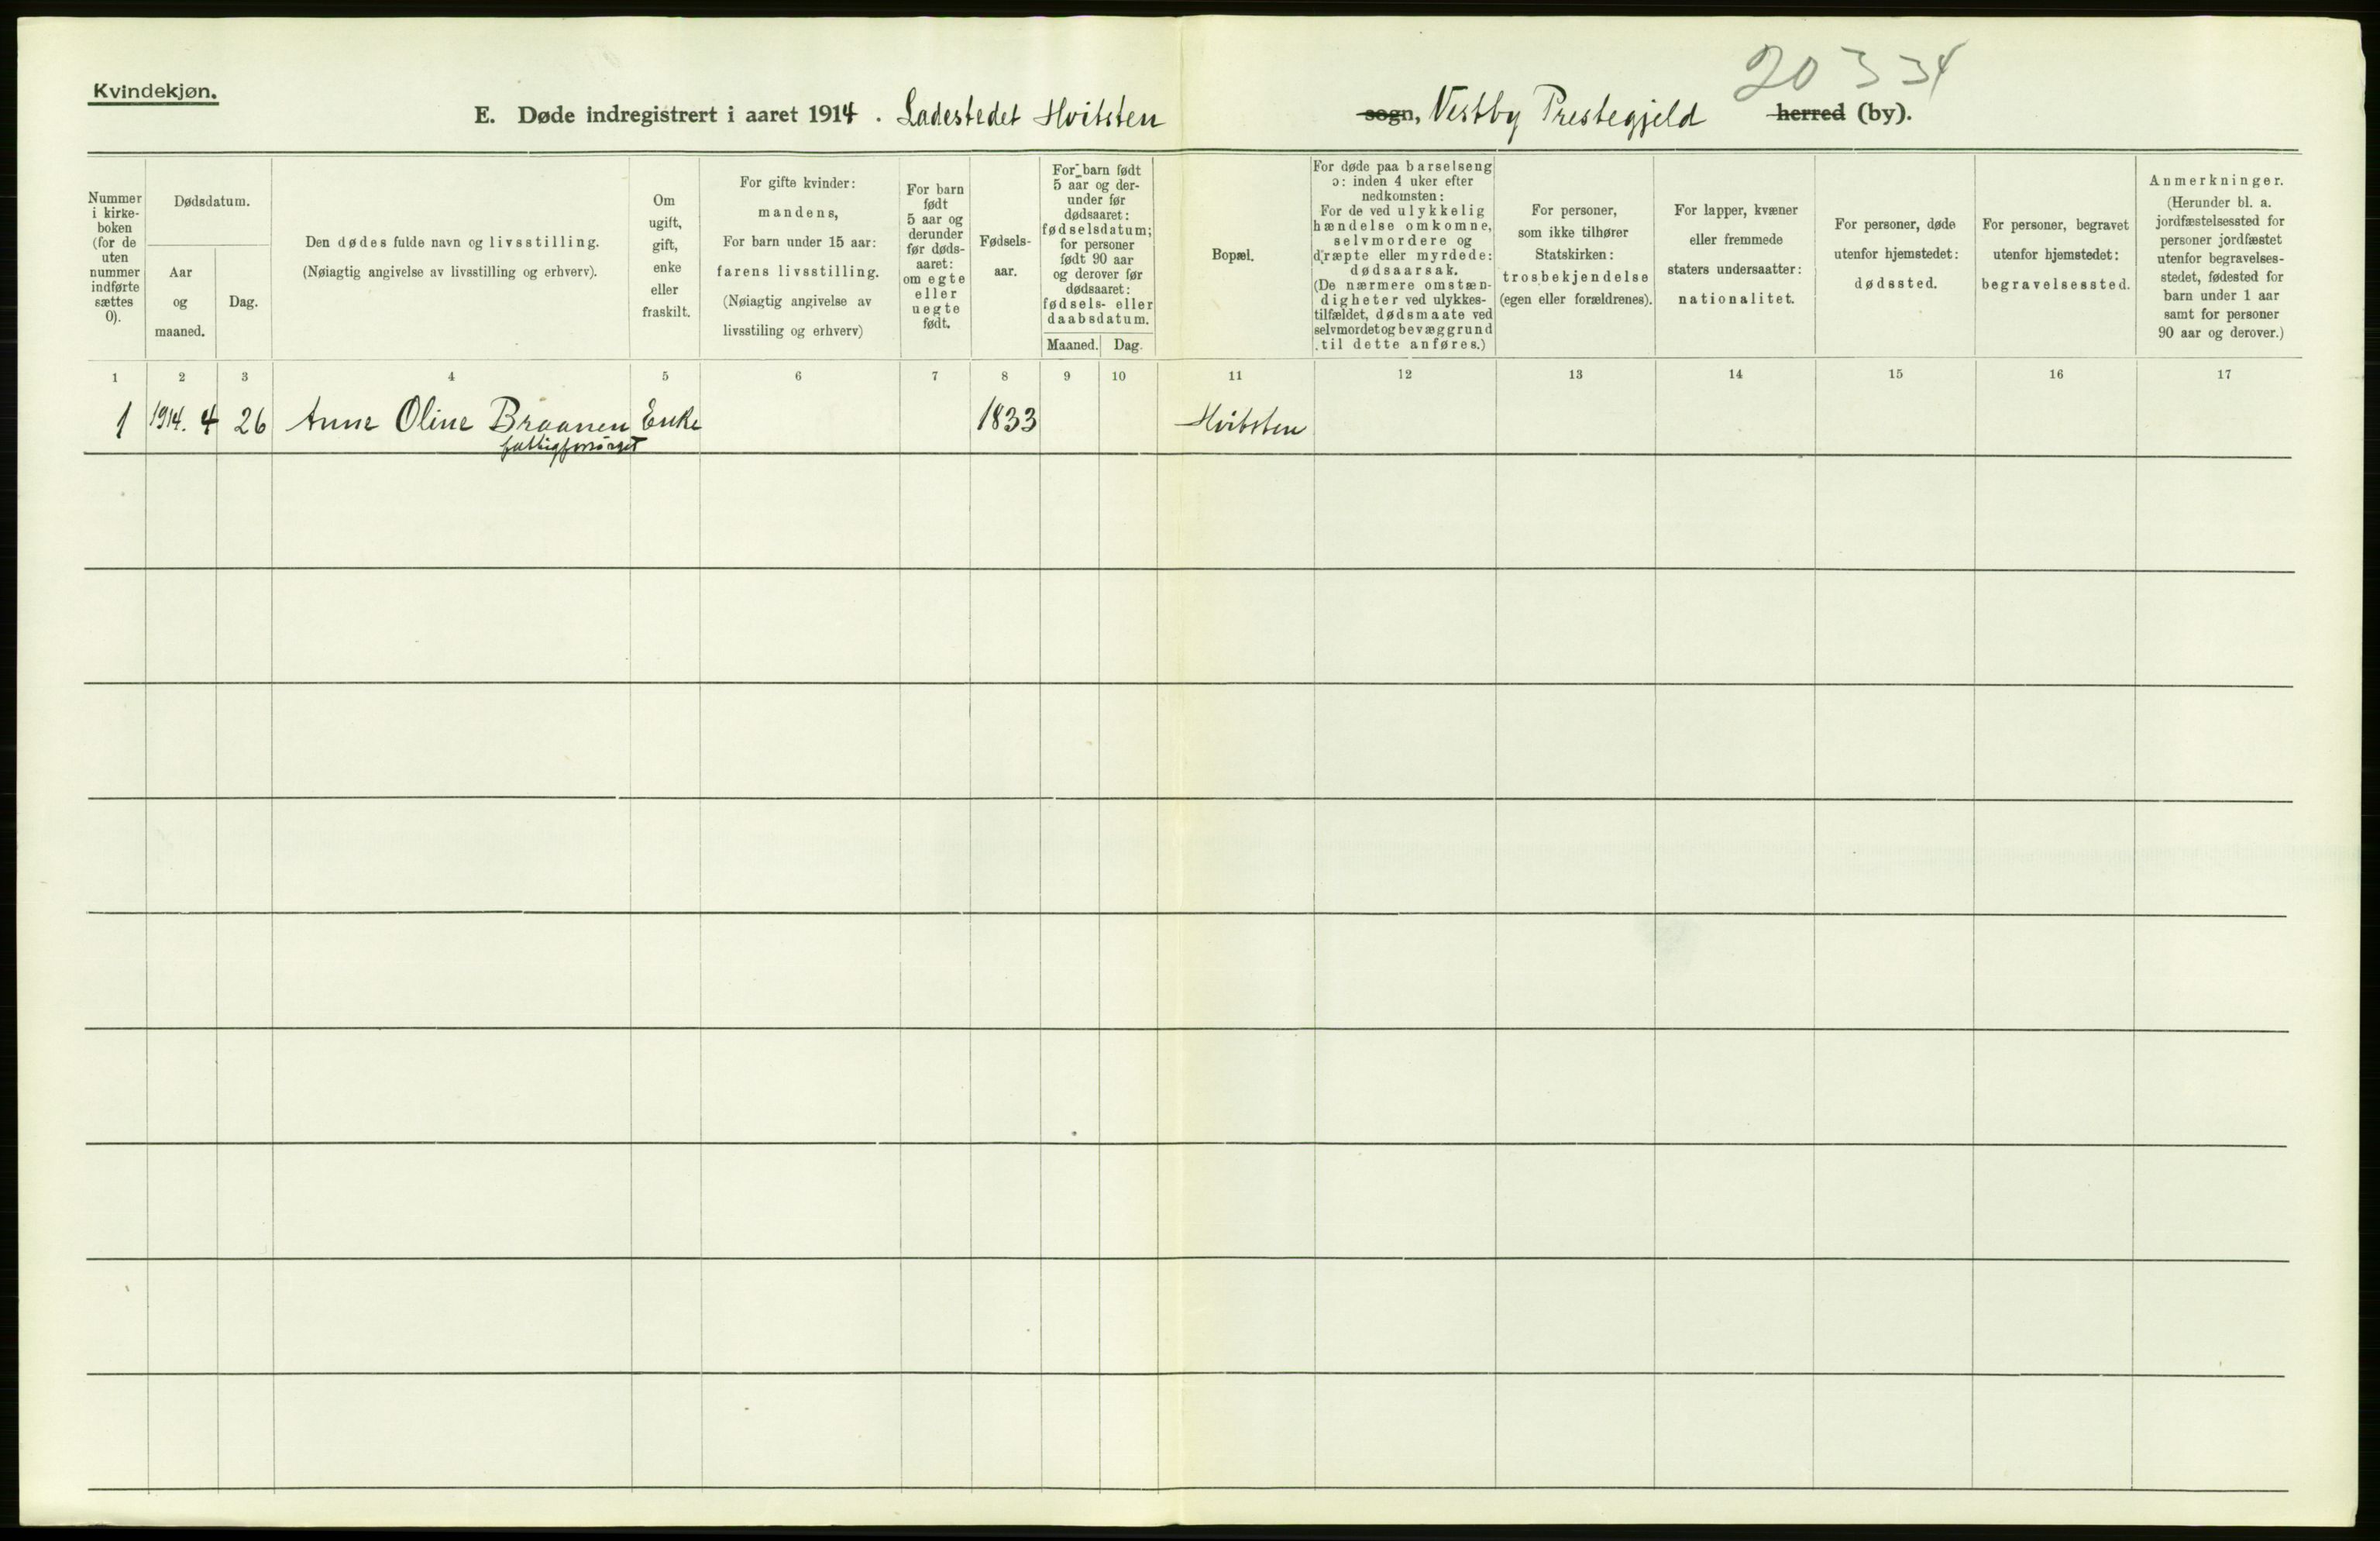 20334
Kvindekjøn.
E. Døde indregistrert i aaret 1914. Ladestedet Hvitsten sogn, Vestby Prestegjeld herred (by).
Nummer i kirkeboken (for de uten nummer indførte sættes 0).
Dødsdatum.
Aar og maaned.
Dag.
Den dødes fulde navn og livsstilling.
(Nøiagtig angivelse av livsstilling og erhverv).
Om ugift, gift, enke eller fraskilt.
For gifte kvinder:
mandens,
For barn under 15 aar:
farens livsstilling.
(Nøiagtig angivelse av
livsstiling og erhverv)
For barn født 5 aar og derunder før dødsaaret: om egte eller uegte født.
Fødselsaar.
For barn født 5 aar og derunder før dødsaaret: fødselsdatum; for personer født 90 aar og derover før dødsaaret: fødsels- eller daabsdatum.
Maaned.
Dag.
Bopæl.
For døde paa barselseng
ɔ: inden 4 uker efter
nedkomsten:
For de ved ulykkelig
hændelse omkomne,
selvmordere og
dræpte eller myrdede:
dødsaarsak.
(De nærmere omstæn-
digheter ved ulykkes-
tilfældet, dødsmaate ved
selvmordet og bevæggrund
til dette anføres.)
For personer,
som ikke tilhører
Statskirken:
trosbekjendelse
(egen eller forældrenes).
For lapper, kvæner
eller fremmede
staters undersaatter:
nationalitet.
For personer, døde
utenfor hjemstedet:
dødssted.
For personer, begravet
utenfor hjemstedet:
begravelsessted.
Anmerkninger.
(Herunder bl. a.
jordfæstelsessted for
personer jordfæstet
utenfor begravelses-
stedet, fødested for
barn under 1 aar
samt for personer
90 aar og derover.)
1 2 3 4 5 6 7 8 9 10 11 12 13 14 15 16 17
1 1914. 4 26 Anne Oline Braanen Enke 1833 Hvitsten
fattigforsørget